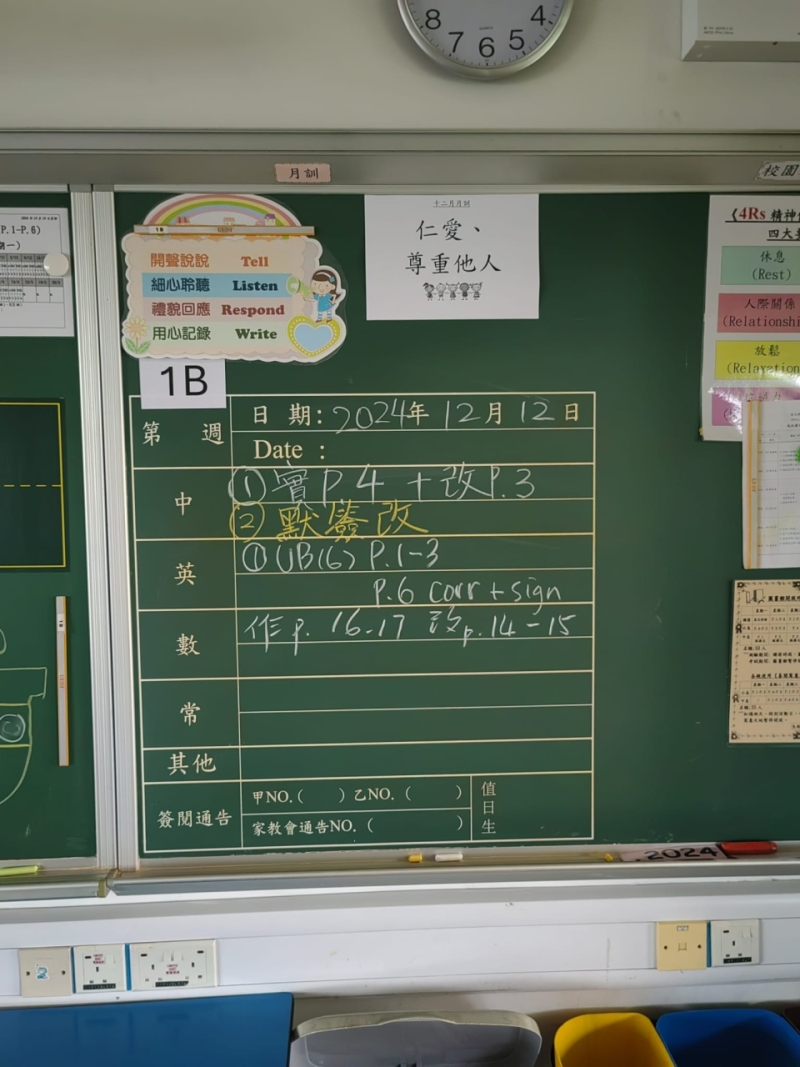 8 7 6 5 4
月訓
校園
P.1-P.6)
十二月月訓
仁愛、
尊重他人
1B
開聲說說 Tell
細心聆聽 Listen
禮貌回應 Respond
用心記錄 Write
《4Rs 精神
四大
休息
(Rest)
人際關係
(Relationshi
放鬆
(Relaxation
1B
第 週
日 期: 2024年 12月 12日
Date :
中
① 實P4 + 改P.3
② 默簽改
英
① UB(6) P.1-3
P.6 corr + sign
數
作p. 16-17 改p.14-15
常
其他
簽閱通告
甲NO.( ) 乙NO. ( )
家教會通告NO. ( )
值日生
.2024
2